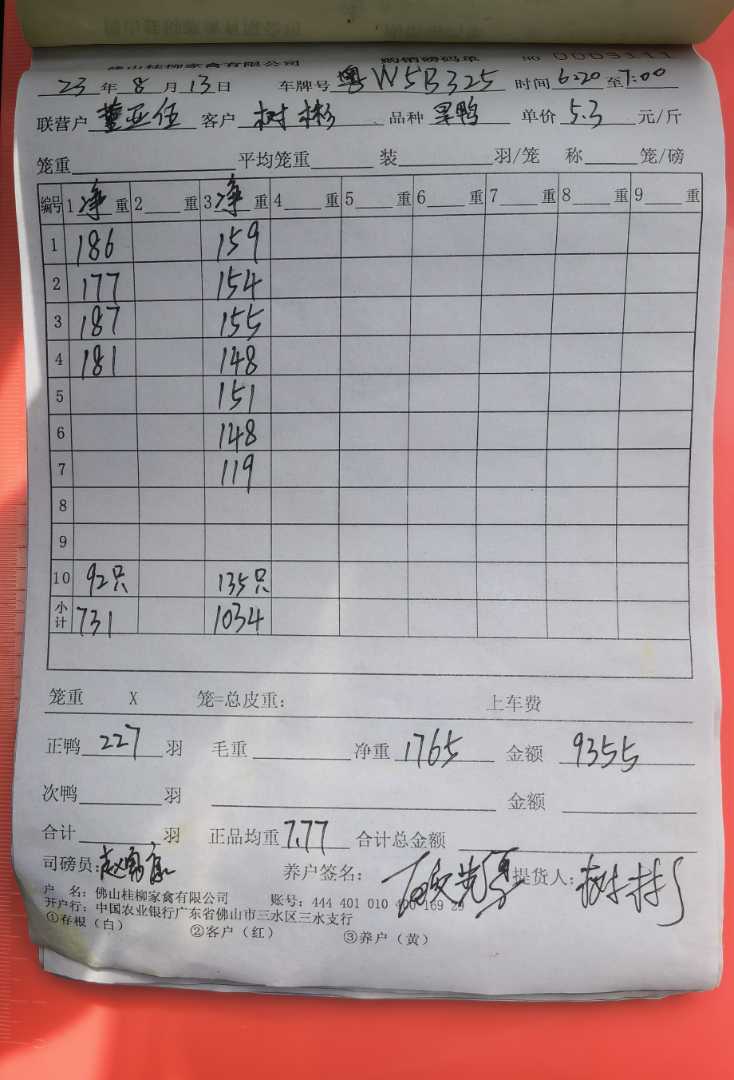 佛山桂柳家禽有限公司 购销磅码单 NO 0009111
23年8月13日 车牌号粤W5B325 时间6:20至7:00
联营户董亚伍 客户树彬 品种旱鸭 单价5.3元/斤
笼重 平均笼重 装 羽/笼 称 笼/磅
编号 1净重 2 重 3净重 4 重 5 重 6 重 7 重 8 重 9 重
1 186 159
2 177 154
3 187 155
4 181 148
5 151
6 148
7 119
8
9
10 92只 135只
小计 731 1034
笼重 X 笼=总皮重： 上车费
正鸭227羽 毛重 净重1765 金额9355
次鸭 羽 金额
合计 羽 正品均重7.77 合计总金额
司磅员： 养户签名： 提货人：树彬
户 名：佛山桂柳家禽有限公司 账号：444 401 010 400 169 29
开户行：中国农业银行广东省佛山市三水区三水支行
①存根（白） ②客户（红） ③养户（黄）